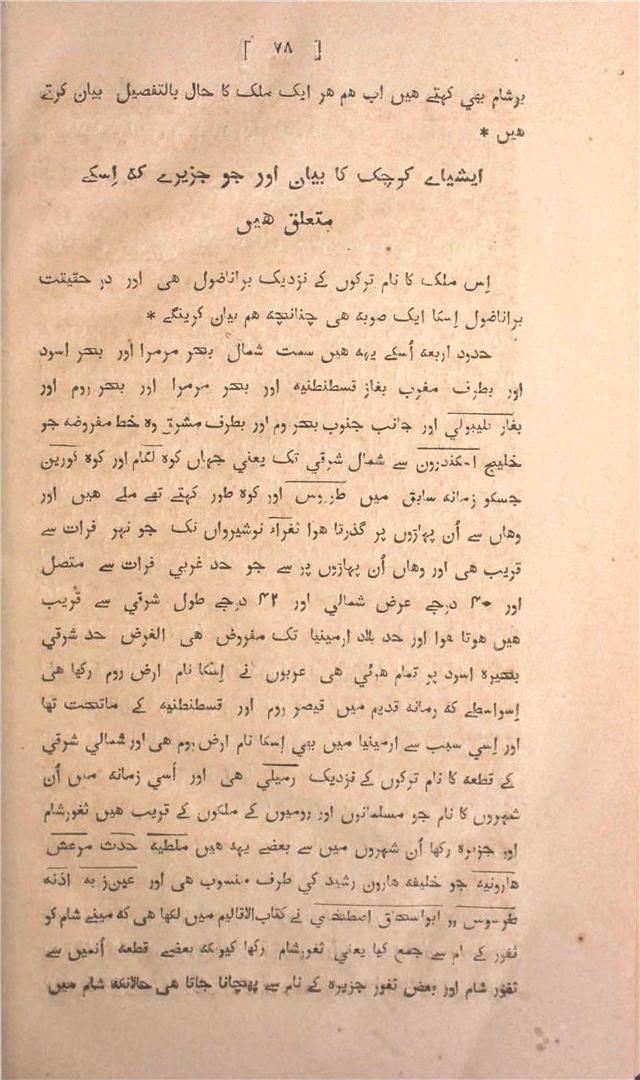 [ ٧٨ ]
برشام بهي کہتے هیں اب هم هر ایک ملک کا حال بالتفصیل بیان کرتے
هیں *
ایشیاے کوچک کا بیان اور جو جزیرے که اِسکے
متعلق هیں
اِس ملک کا نام ترکوں کے نزدیک براناضول هی اور در حقیقت
براناضول اِسکا ایک صوبه هی چنانچه هم بیان کرینگے *
حدود اربعه اُسکے یہه هیں سمت شمال بحر مرمرا اور بحر اسود
اور بطرف مغرب بغاز قسطنطنیه اور بحر مرمرا اور بحر روم اور
بغاز گلیبولي اور جانب جنوب بحر روم اور بطرف مشرق وه خط مفروضه جو
خلیج اسکندرون سے شمال شرقي تک یعني جہاں کوه لگام اور کوه کورین
جسکو زمانه سابق میں طوروس اور کوه طور کہتے تهے ملے هیں اور
وهاں سے اُن پہاڑوں پر گذرتا هوا ثغراء نوشیرواں تک جو نہر فرات سے
قریب هی اور وهاں اُن پہاڑوں پر سے جو حد غربي فرات سے متصل
اور ۴۰ درجے عرض شمالي اور ۴۲ درجے طول شرقي سے قریب
هیں هوتا هوا اور حد بلاد ارمینیا تک مفروض هی الغرض حد شرقي
بحیره اسود پر تمام هوئي هی عربوں نے اِسکا نام ارض روم رکها هی
اِسواسطے که زمانه قدیم میں قیصر روم اور قسطنطنیه کے ماتحت تها
اور اِسي سبب سے ارمینیا میں بهي اِسکا نام ارض روم هی اور شمالي شرقي
کے قطعه کا نام ترکوں کے نزدیک رمیلي هی اور اُسي زمانه میں اُن
شہروں کا نام جو مسلمانوں اور رومیوں کے ملکوں کے قریب هیں ثغور شام
اور جزیره رکها اُن شہروں میں سے بعضے یہه هیں ملطیه حدث مرعش
هارونیه جو خلیفه هارون رشید کي طرف منسوب هی اور عین زربه اذنه
طرسوس اور ابواسحاق اصطخري نے کتاب الاقالیم میں لکها هی که مینے شام کو
ثغور کے نام سے جمع کیا یعني ثغور شام رکها کیونکه بعضے قطعه اُنمیں سے
ثغور شام اور بعض ثغور جزیره کے نام سے پہچانا جاتا هی حالانکه شام میں